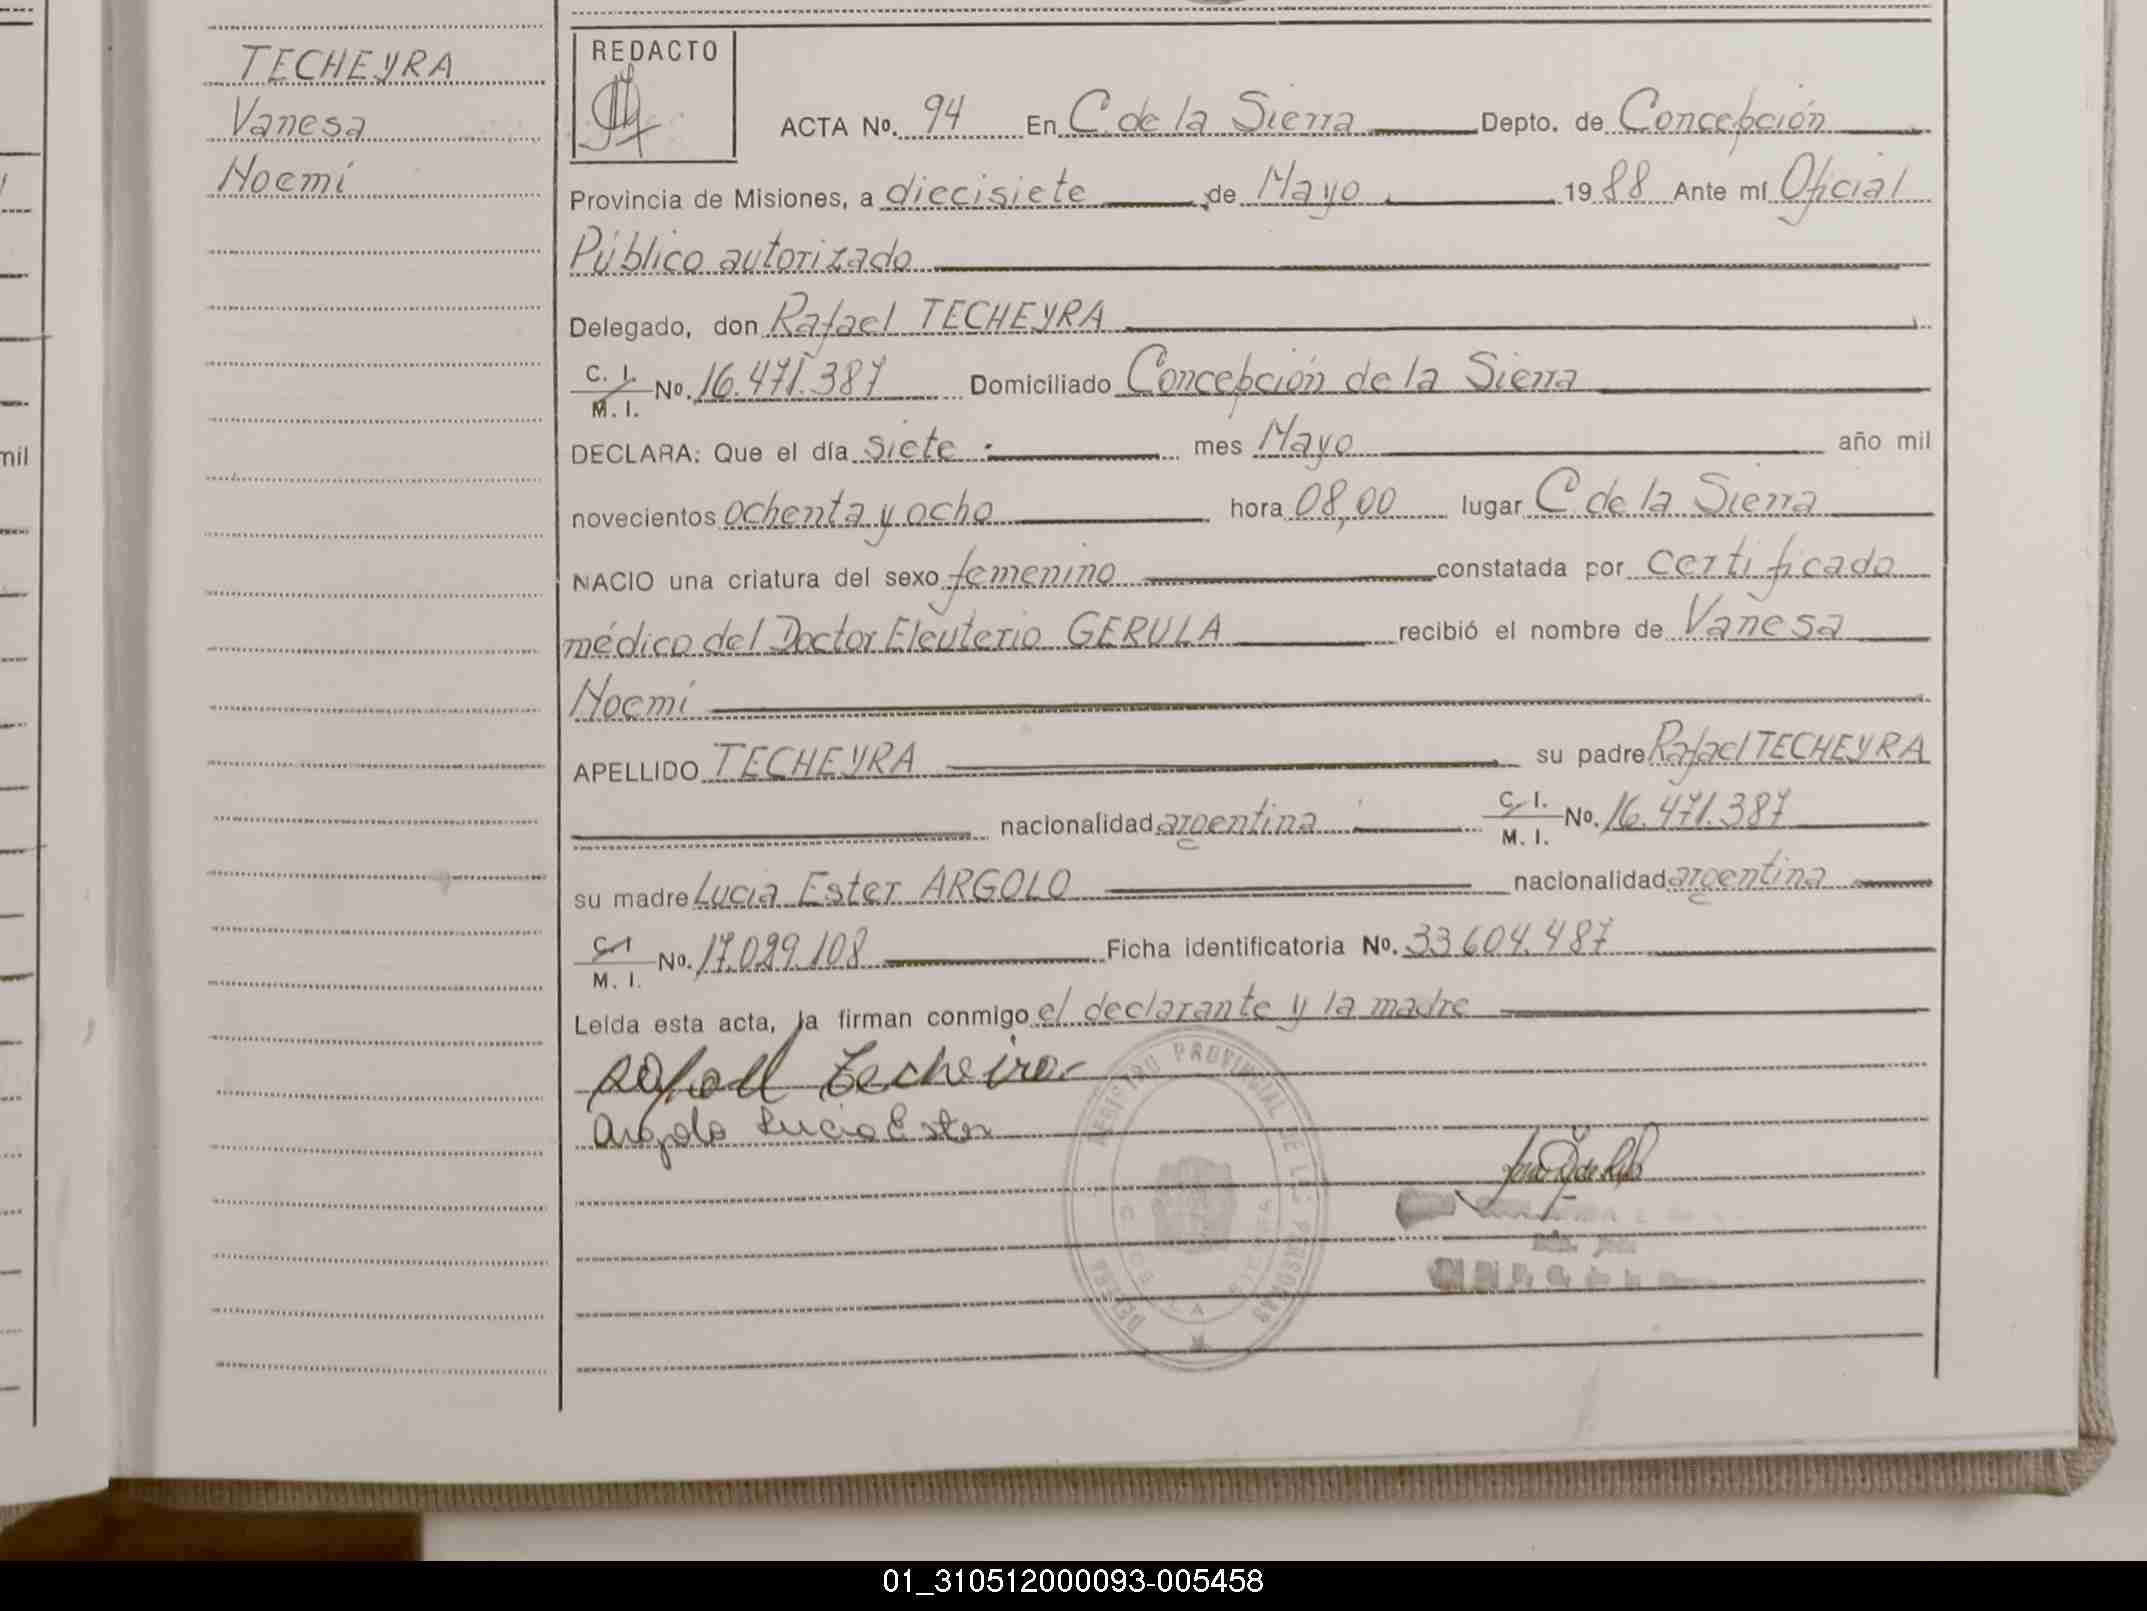 TECHEYRA
Vanesa
Noemí
REDACTO
ACTA Nº. 94 En C. de la Sierra Depto. de Concepción
Provincia de Misiones, a diecisiete de Mayo 1988 Ante mí Oficial
Público autorizado
Delegado, don Rafael TECHEYRA
C. I.
M. I. Nº. 16.471.387 Domiciliado Concepción de la Sierra
DECLARA: Que el día siete mes Mayo año mil
novecientos ochenta y ocho hora 08,00 lugar C de la Sierra
NACIO una criatura del sexo femenino constatada por certificado
médico del Doctor Eleuterio GERULA recibió el nombre de Vanesa
Noemí
APELLIDO TECHEYRA su padre Rafael TECHEYRA
nacionalidad argentina C. I.
M. I. Nº. 16.471.387
su madre Lucia Ester ARGOLO nacionalidad argentina
C. I.
M. I. Nº. 17.099.108 Ficha identificatoria Nº. 33.604.487
Leída esta acta, la firman conmigo el declarante y la madre
Rafael Techeira
Argolo Lucia Ester
REGISTRO PROVINCIAL DE LAS PERSONAS
mil
01_310512000093-005458